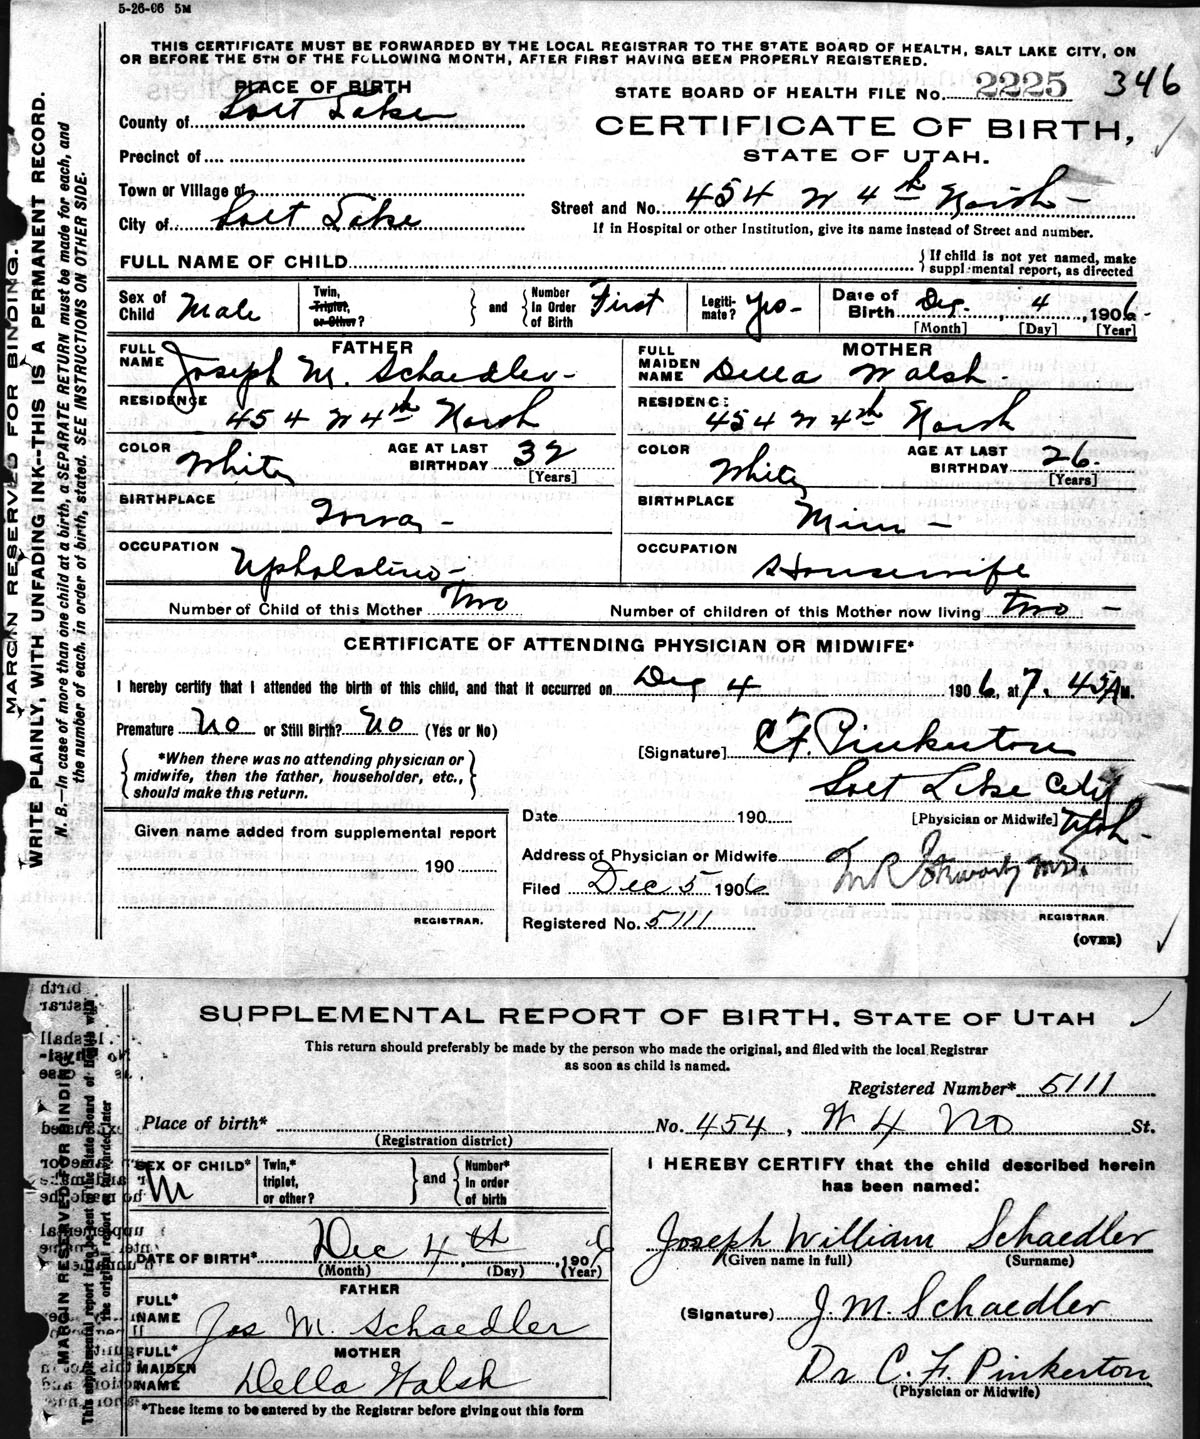 5-26-06 5M
THIS CERTIFICATE MUST BE FORWARDED BY THE LOCAL REGISTRAR TO THE STATE BOARD OF HEALTH, SALT LAKE CITY, ON
OR BEFORE THE 5TH OF THE FOLLOWING MONTH, AFTER FIRST HAVING BEEN PROPERLY REGISTERED.
PLACE OF BIRTH
STATE BOARD OF HEALTH FILE No. 2225 346
County of Salt Lake
CERTIFICATE OF BIRTH,
STATE OF UTAH.
Precinct of
Town or Village of
Street and No. 454 W 4th North
City of Salt Lake
If in Hospital or other Institution, give its name instead of Street and number.
FULL NAME OF CHILD
{ If child is not yet named, make
supplemental report, as directed
Sex of Child Male
Twin, Triplet, or Other? } and { Number In Order of Birth First
Legitimate? Yes
Date of Birth Dec. 4, 1906
[Month] [Day] [Year]
FATHER
FULL NAME Joseph M. Schaedler
RESIDENCE 454 W 4th North
COLOR White AGE AT LAST BIRTHDAY 32 [Years]
BIRTHPLACE Iowa
OCCUPATION
MOTHER
FULL MAIDEN NAME Della Walsh
RESIDENCE 454 W 4th North
COLOR White AGE AT LAST BIRTHDAY 26 [Years]
BIRTHPLACE Minn
OCCUPATION Housewife
Number of Child of this Mother Two Number of children of this Mother now living Two
CERTIFICATE OF ATTENDING PHYSICIAN OR MIDWIFE*
I hereby certify that I attended the birth of this child, and that it occurred on Dec 4 1906, at 7.45 A M.
Premature No or Still Birth? No (Yes or No)
[Signature] C.F. Pinkerton
{ *When there was no attending physician or
midwife, then the father, householder, etc.,
should make this return. }
Salt Lake City
Utah
Date 190 [Physician or Midwife]
Given name added from supplemental report
190
REGISTRAR.
Address of Physician or Midwife
Filed Dec 5 1906
M.D.
Registered No. 5111 REGISTRAR.
(OVER)
MARGIN RESERVED FOR BINDING.
WRITE PLAINLY, WITH UNFADING INK--THIS IS A PERMANENT RECORD.
N. B.—In case of more than one child at a birth, a SEPARATE RETURN must be made for each, and
the number of each, in order of birth, stated. SEE INSTRUCTIONS ON OTHER SIDE.
SUPPLEMENTAL REPORT OF BIRTH, STATE OF UTAH
This return should preferably be made by the person who made the original, and filed with the local Registrar
as soon as child is named.
Registered Number* 5111
Place of birth* No. 454, W 4 No St.
(Registration district)
SEX OF CHILD* M
Twin,* triplet, or other? } and { Number* In order of birth
I HEREBY CERTIFY that the child described herein
has been named:
DATE OF BIRTH* Dec 4th, 1906
(Month) (Day) (Year)
Joseph William Schaedler
(Given name in full) (Surname)
FATHER
FULL* NAME Jos M. Schaedler
(Signature) J. M. Schaedler
MOTHER
FULL* MAIDEN NAME Della Walsh
Dr C. F. Pinkerton
(Physician or Midwife)
*These items to be entered by the Registrar before giving out this form
MARGIN RESERVED FOR BINDING